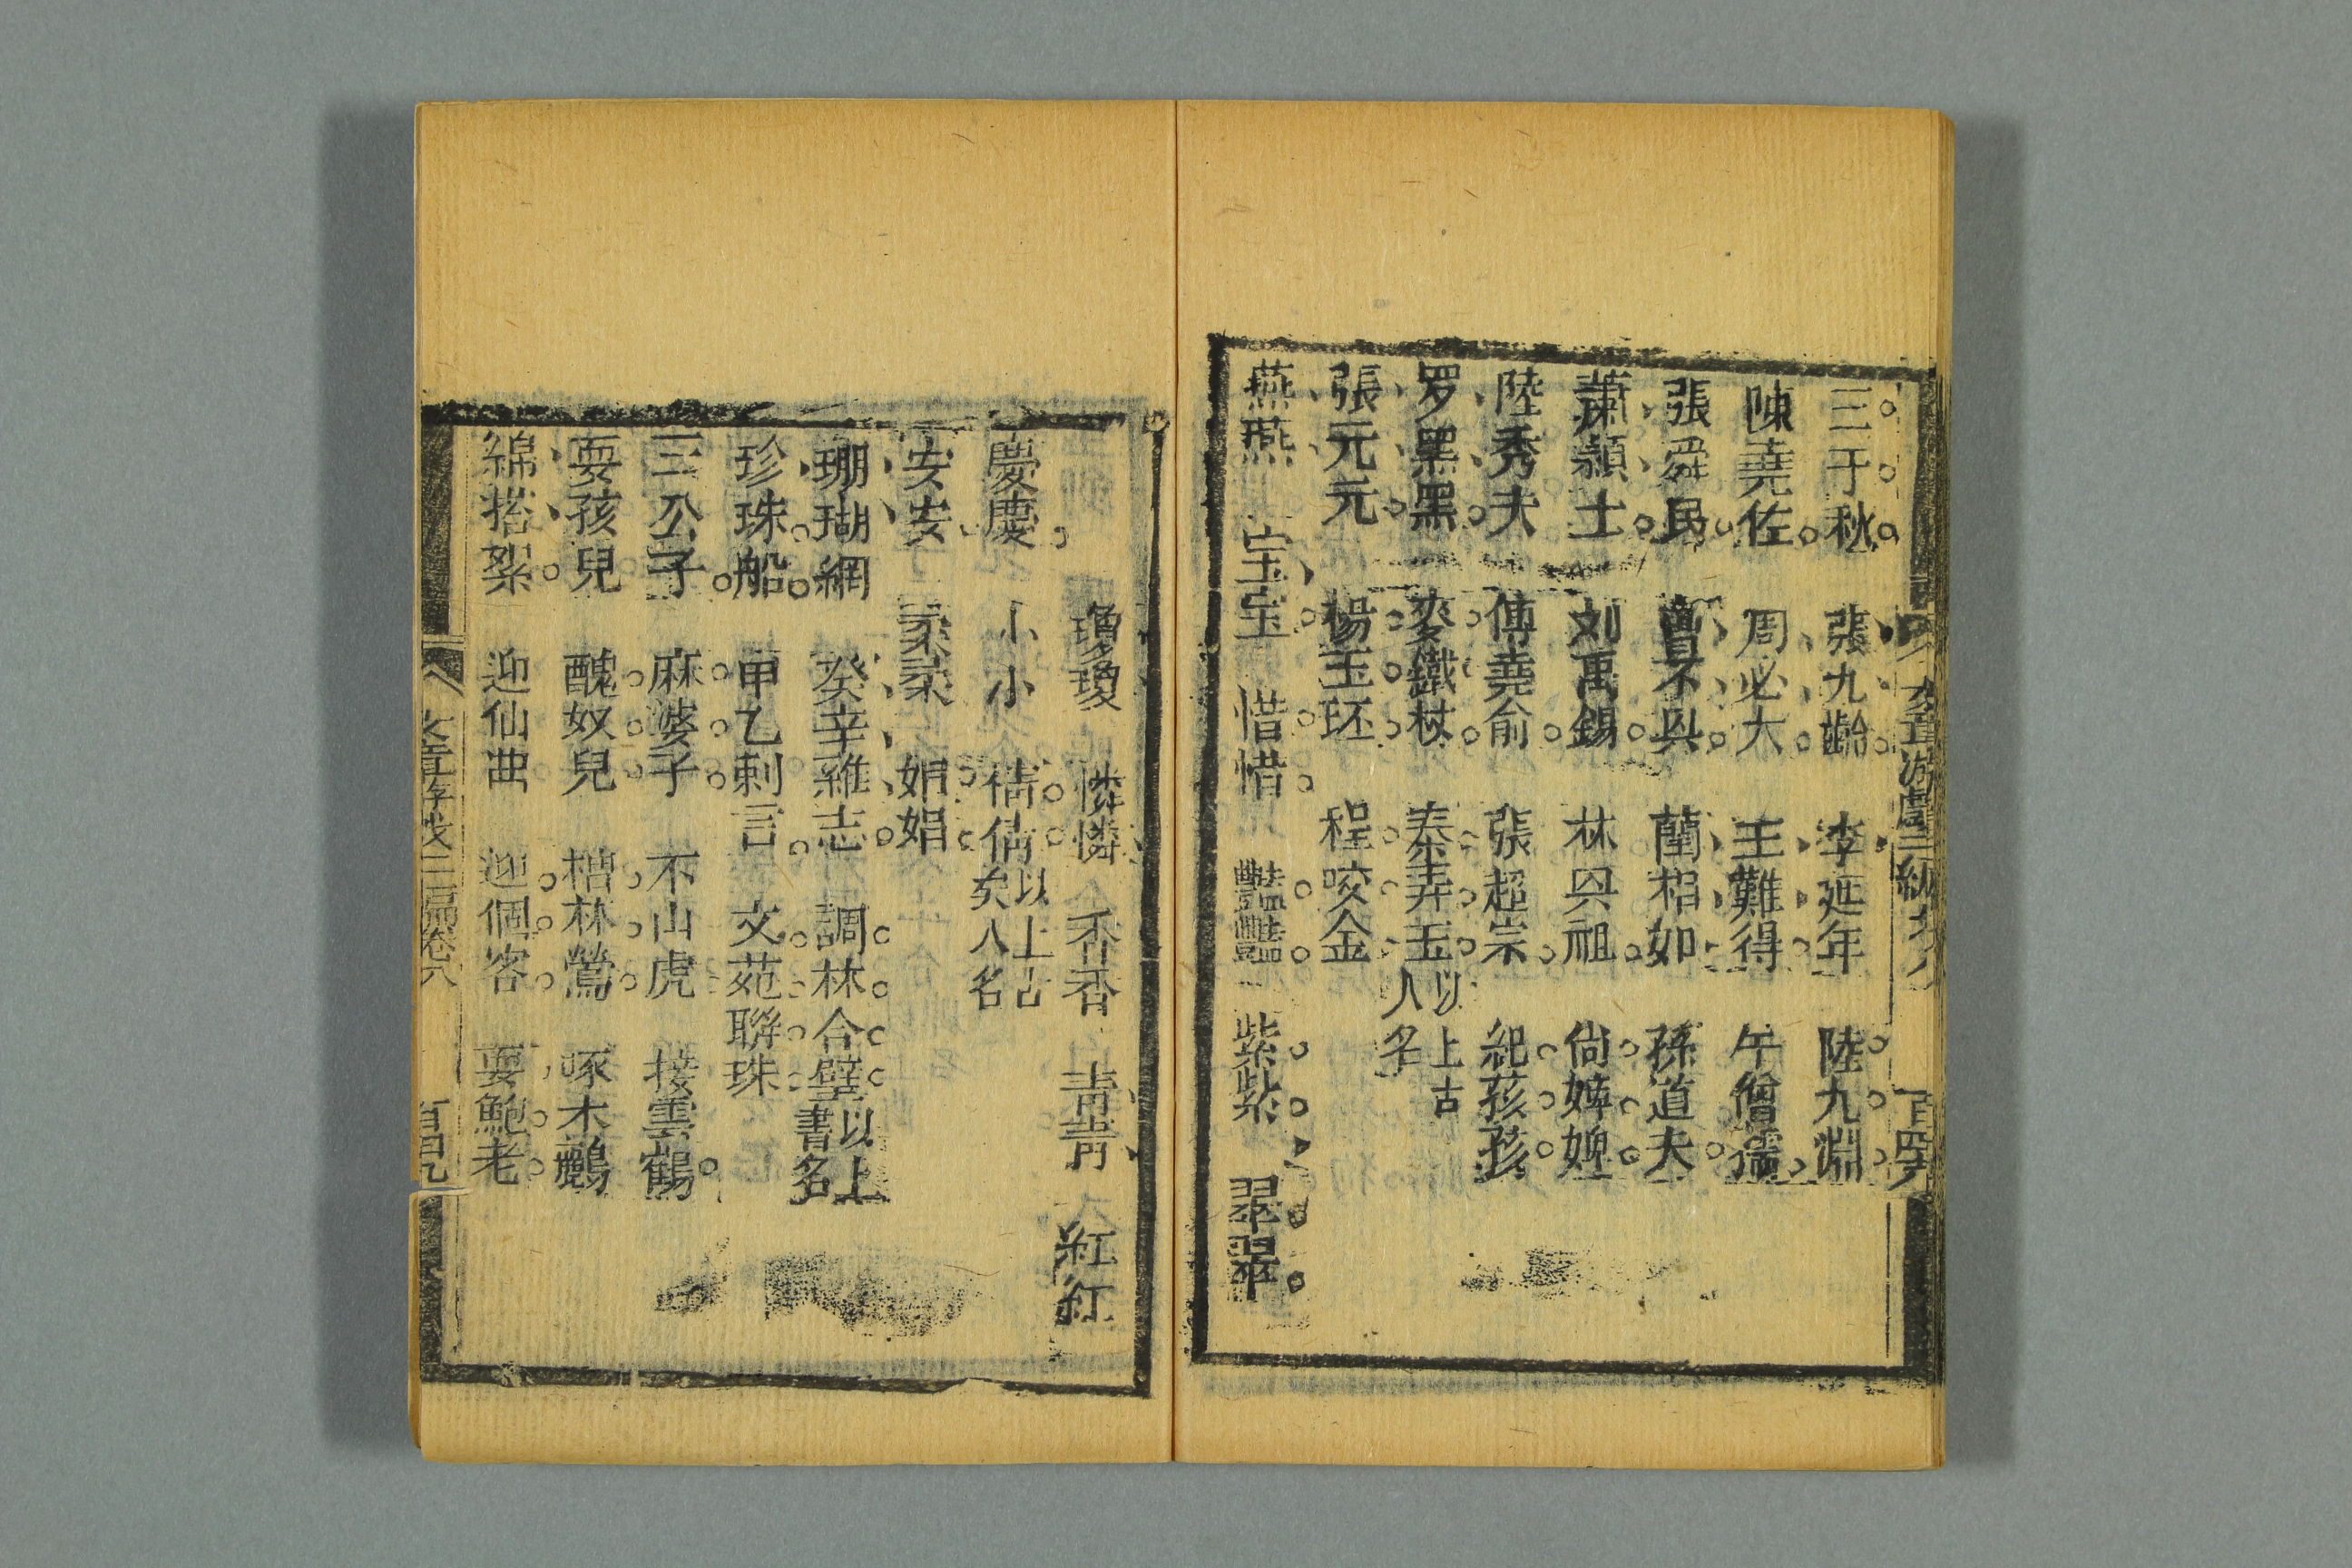 三于秋 張九齡 李延年 陸九淵
陳堯佐 周必大 王難得 午僧孺
張舜民 曾不與 藺相如 孫道夫
蕭頴士 刘禹錫 林興祖 尚婢婢
陸秀夫 傅堯俞 張超宗 紀孩孩
罗黑黑 麥鐵杖 秦弄玉 以上古人名
張元元 楊玉环 程咬金
燕燕 宝宝 惜惜 豔豔 紫紫 翠翠
瓊瓊 憐憐 香香 靑靑 紅紅
慶慶 小小 倩倩 以上古美人名
安安 柔柔 娟娟
珊瑚網 癸辛雜志 調林合璧 以上書名
珍珠船 甲乙剩言 文苑聯珠
三公子 麻婆子 不山虎 接雲鶴
耍孩兒 醜奴兒 梢林鶯 啄木鸝
綿搭絮 迎仙曲 迎個客 耍鮑老
卷八